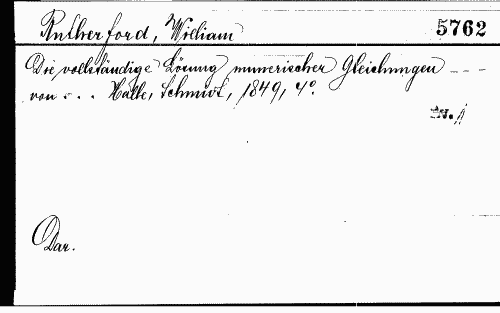 Rutherford, William 5762
Die vollständige Lösung numerischer Gleichungen ---
von ... Halle, Schmidt, 1849, 4º.
Dar.